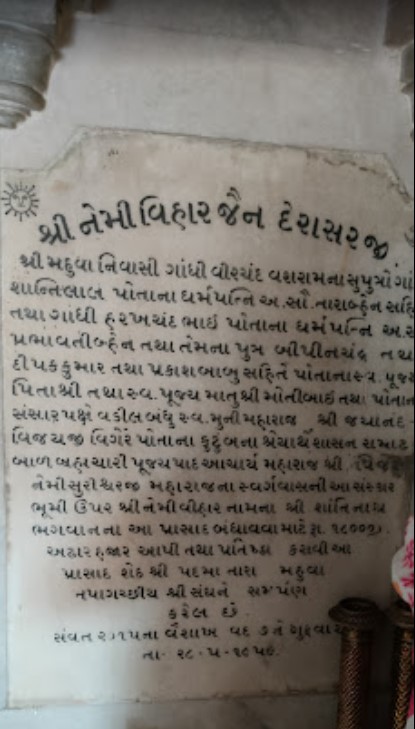 શ્રી નેમીવિહાર જૈન દેરાસરજી
શ્રી મહુવા નિવાસી ગાંધી વીરચંદ વશરામના સુપુત્રો ગાં
શાન્તિલાલ પોતાના ધર્મપત્નિ અ.સૌ.તારાબ્હેન સહિ
તથા ગાંધી હરખચંદ ભાઇ પોતાના ધર્મપત્નિ અ.સ
પ્રભાવતીબ્હેન તથા તેમના પુત્ર બીપીનચંદ્ર તથા
દીપકકુમાર તથા પ્રકાશબાબુ સહિતે પોતાના સ્વ. પૂજ્ય
પિતાશ્રી તથા સ્વ. પૂજ્ય માતુશ્રી મોતીબાઇ તથા પોતાન
સંસારપક્ષે વડીલ બંધુ સ્વ.મુની મહારાજ શ્રી જયાનંદ
વિજયજી વિગેરે પોતાના કુટુંબના શ્રેયાર્થે શાસન સમ્રાટ
બાળ બ્રહ્મચારી પૂજ્યપાદ આચાર્ય મહારાજ શ્રી વિજય
નેમીસુરીશ્વરજી મહારાજના સ્વર્ગવાસની આ સંસ્કાર
ભૂમી ઉપર શ્રી નેમીવીહાર નામના શ્રી શાંતિનાથ
ભગવાનના આ પ્રાસાદ બંધાવવા માટે રૂા. ૧૮૦૦૦).
અઢાર હજાર આપી તથા પ્રતિષ્ઠા કરાવી આ
પ્રાસાદ શેઠ શ્રી પદમા તારા મહુવા
તપાગચ્છીય શ્રી સંઘને સમર્પણ
કરેલ છે.
સંવત ૨૦૧૫ના વૈશાખ વદ ૭ને ગુરૂવાર
તા- ૨૮-૫-૧૯૫૯.